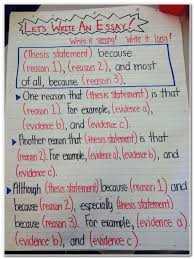 LET'S WRITE AN ESSAY!
Write it strong! Write it long!
(Thesis statement) because
(reason 1), (reason 2), and most
of all, because (reason 3).
One reason that (thesis statement) is that
(reason 1). For example, (evidence a),
(evidence b), and (evidence c).
Another reason that (thesis statement) is that
(reason 2). For example, (evidence a), (evidence b),
and (evidence c).
Although (thesis statement) because (reason 1) and
because (reason 2), especially (thesis statement)
because (reason 3). For example, (evidence a),
(evidence b), and (evidence c).